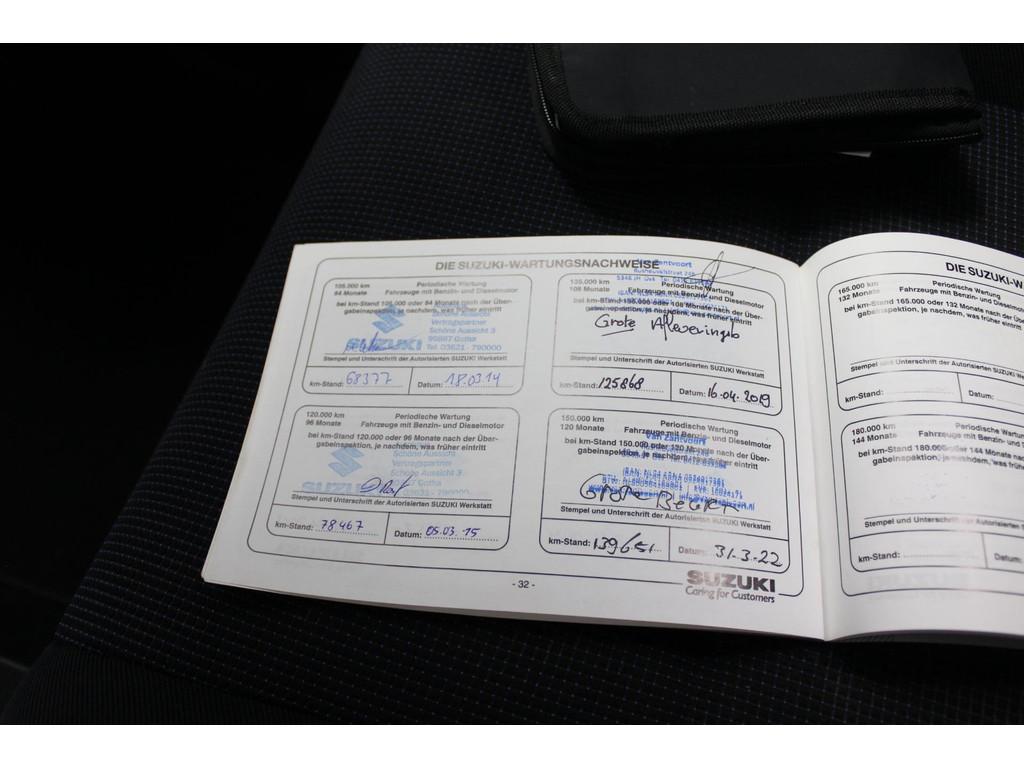 DIE SUZUKI-WARTUNGSNACHWEISE
105.000 km
84 Monate
Periodische Wartung
Fahrzeuge mit Benzin- und Dieselmotor
bei km-Stand 105.000 oder 84 Monate nach der Über-
gabeinspektion, je nachdem, was früher eintritt
Schöne Aussicht
Vertragspartner
Schöne Aussicht 3
99867 Gotha
SUZUKI Tel. 03621 - 790000
Stempel und Unterschrift der Autorisierten SUZUKI Werkstatt
km-Stand: 68377
Datum: 18.03.14
120.000 km
96 Monate
Periodische Wartung
Fahrzeuge mit Benzin- und Dieselmotor
bei km-Stand 120.000 oder 96 Monate nach der Über-
gabeinspektion, je nachdem, was früher eintritt
Schöne Aussicht
Vertragspartner
Schöne Aussicht 3
Gotha
SUZUKI 03621- 790000
Stempel und Unterschrift der Autorisierten SUZUKI Werkstatt
km-Stand: 78467
Datum: 05.03.15
Van Zantvoort
135.000 km
108 Monate
Periodische Wartung
Fahrzeuge mit Benzin- und Dieselmotor
bei km-Stand 135.000 oder 108 Monate nach der Über-
gabeinspektion, je nachdem, was früher eintritt
Grote Afleveringsb
Stempel und Unterschrift der Autorisierten SUZUKI Werkstatt
km-Stand: 125868
Datum: 16.04.2019
150.000 km
120 Monate
Periodische Wartung
Fahrzeuge mit Benzin- und Dieselmotor
Van Zantvoort
bei km-Stand 150.000 oder 120 Monate nach der Über-
gabeinspektion, je nachdem, was früher eintritt
Grote
Stempel und Unterschrift der Autorisierten SUZUKI Werkstatt
km-Stand: 139651
Datum: 31-3-22
- 32 -
SUZUKI
Caring for Customers
DIE SUZUKI-W
165.000 km
132 Monate
Periodische Wartung
Fahrzeuge mit Benzin- und Dieselm
bei km-Stand 165.000 oder 132 Monate nach der
gabeinspektion, je nachdem, was früher eint
Stempel und Unterschrift der Autorisierten SUZUKI We
km-Stand:
Datum:
180.000 km
144 Monate
Periodische Wartu
Fahrzeuge mit Benzin- und
bei km-Stand 180.000 oder 144 Monate na
gabeinspektion, je nachdem, was früh
Stempel und Unterschrift der Autorisierten
km-Stand:
Datum: